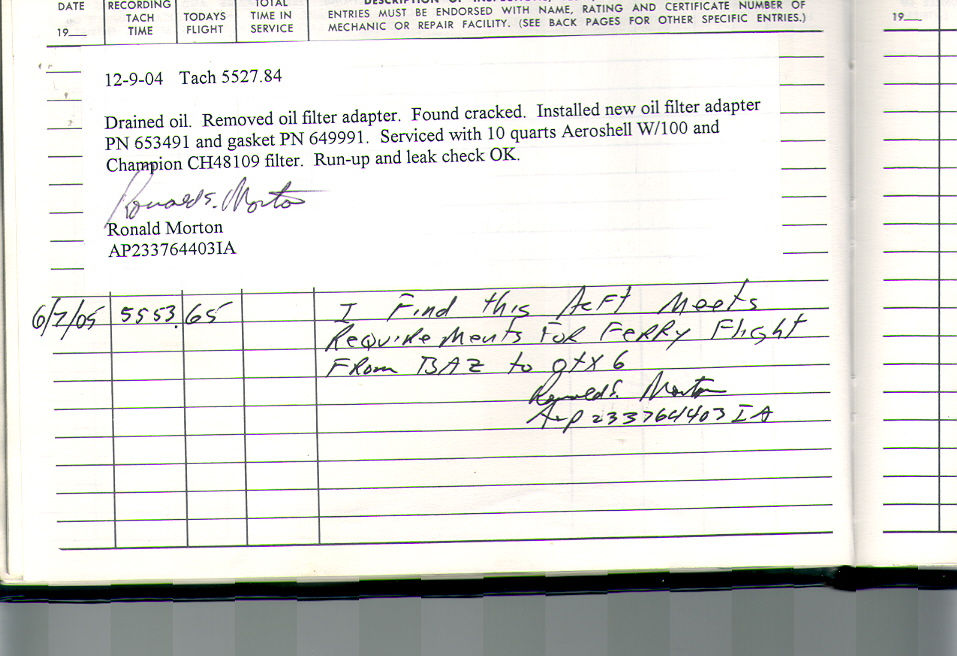 DATE RECORDING TACH TIME TODAYS FLIGHT TOTAL TIME IN SERVICE
ENTRIES MUST BE ENDORSED WITH NAME, RATING AND CERTIFICATE NUMBER OF
MECHANIC OR REPAIR FACILITY. (SEE BACK PAGES FOR OTHER SPECIFIC ENTRIES.)
19
19
12-9-04 Tach 5527.84
Drained oil. Removed oil filter adapter. Found cracked. Installed new oil filter adapter
PN 653491 and gasket PN 649991. Serviced with 10 quarts Aeroshell W/100 and
Champion CH48109 filter. Run-up and leak check OK.
Ronald S. Morton
Ronald Morton
AP233764403IA
6/7/05 5553.65 I Find this Acft Meets
Requirements For Ferry Flight
From BAZ to 9tX6
Ronald S. Morton
A+P 233764403 IA